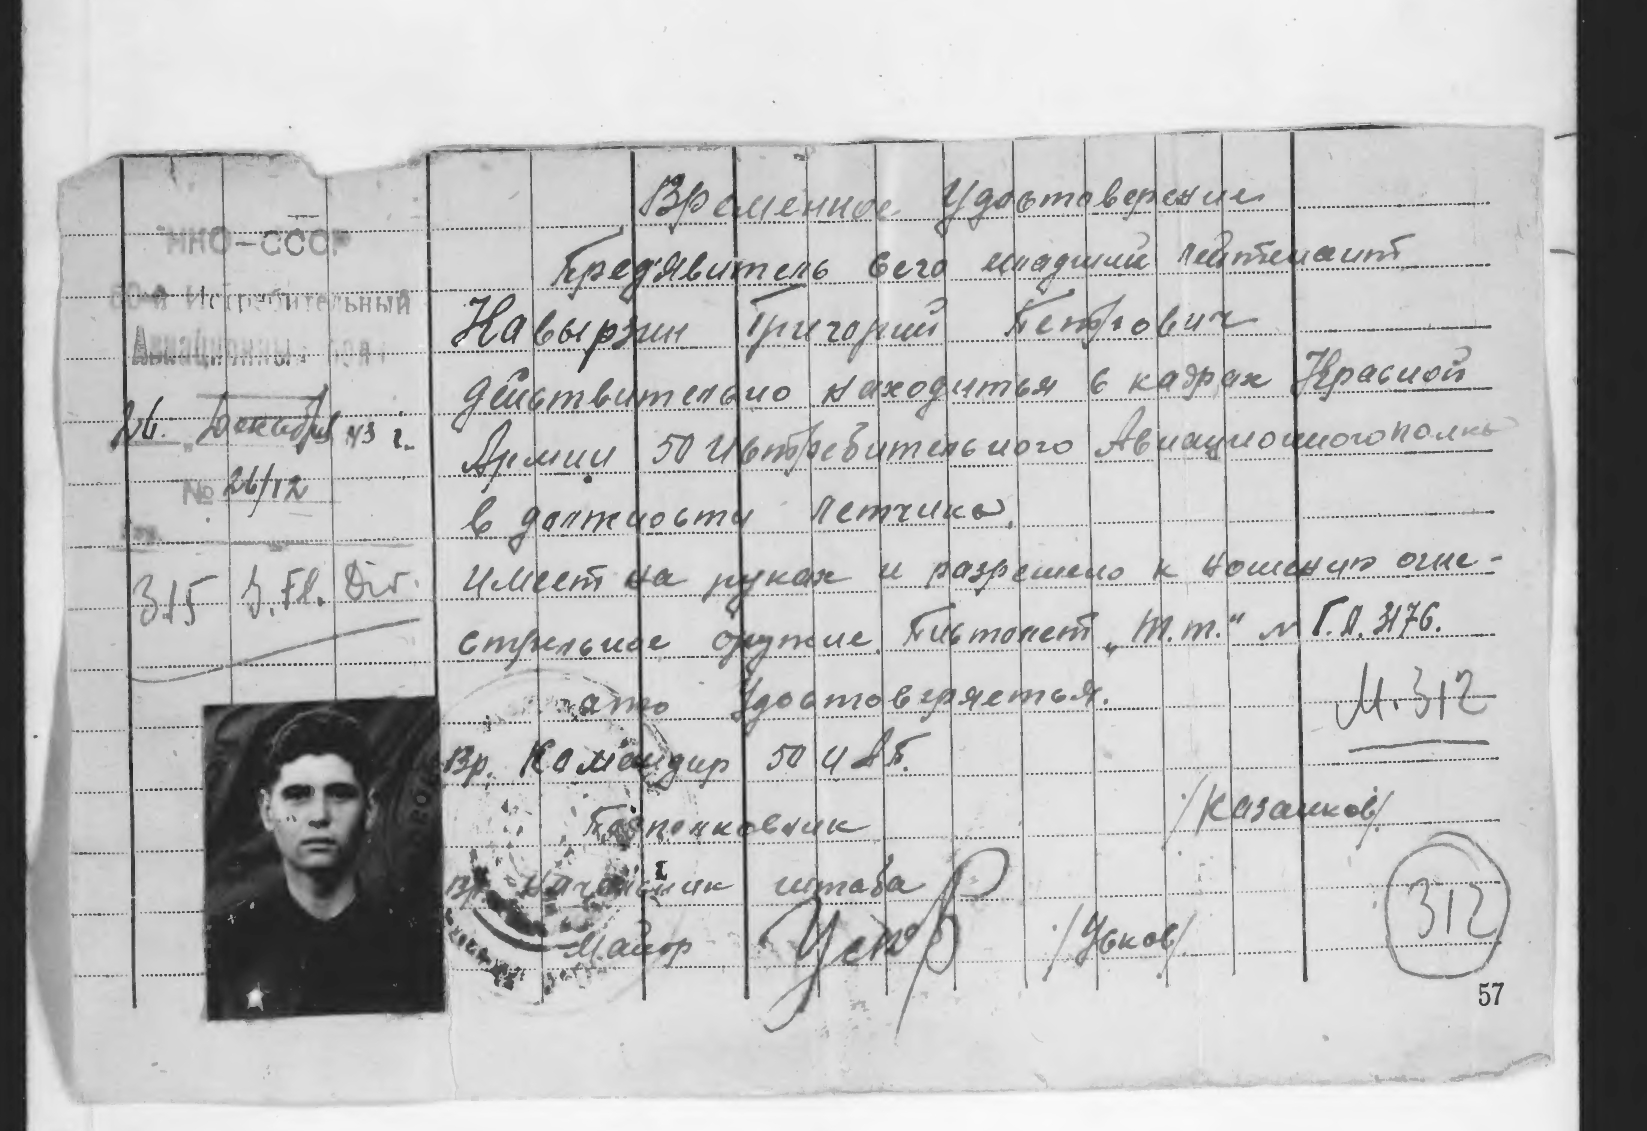 Временное Удостоверение
НКО-СССР
Пред'явитель сего младший лейтенант
50-й Истребительный
Навырзин Григорий Петрович
Авиационный полк
действительно находиться в кадрах Красной
26. Декабря 43 г.
Армии 50 Истребительного Авиационного полка
№ 26/12
в должности летчика.
315 J. Fl. Div.
имеет на руках и разрешено к ношению огне-
стрельное оружие. Пистолет „Т.т.“ №
3176.
что Удостоверяеться.
М. 312
Вр. Командир 50 ИАП.
Подполковник /Казанков/
Вр. Начальник штаба
312
Майор /Усков/
57